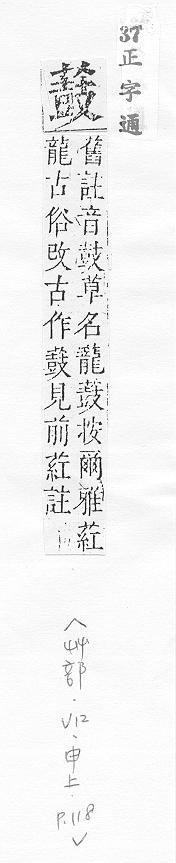 37 正字通
薣
舊註音鼓草名龍薣按爾雅葒
龍古俗改古作薣見前葒註
〈艸部.V12.申上.P.118〉